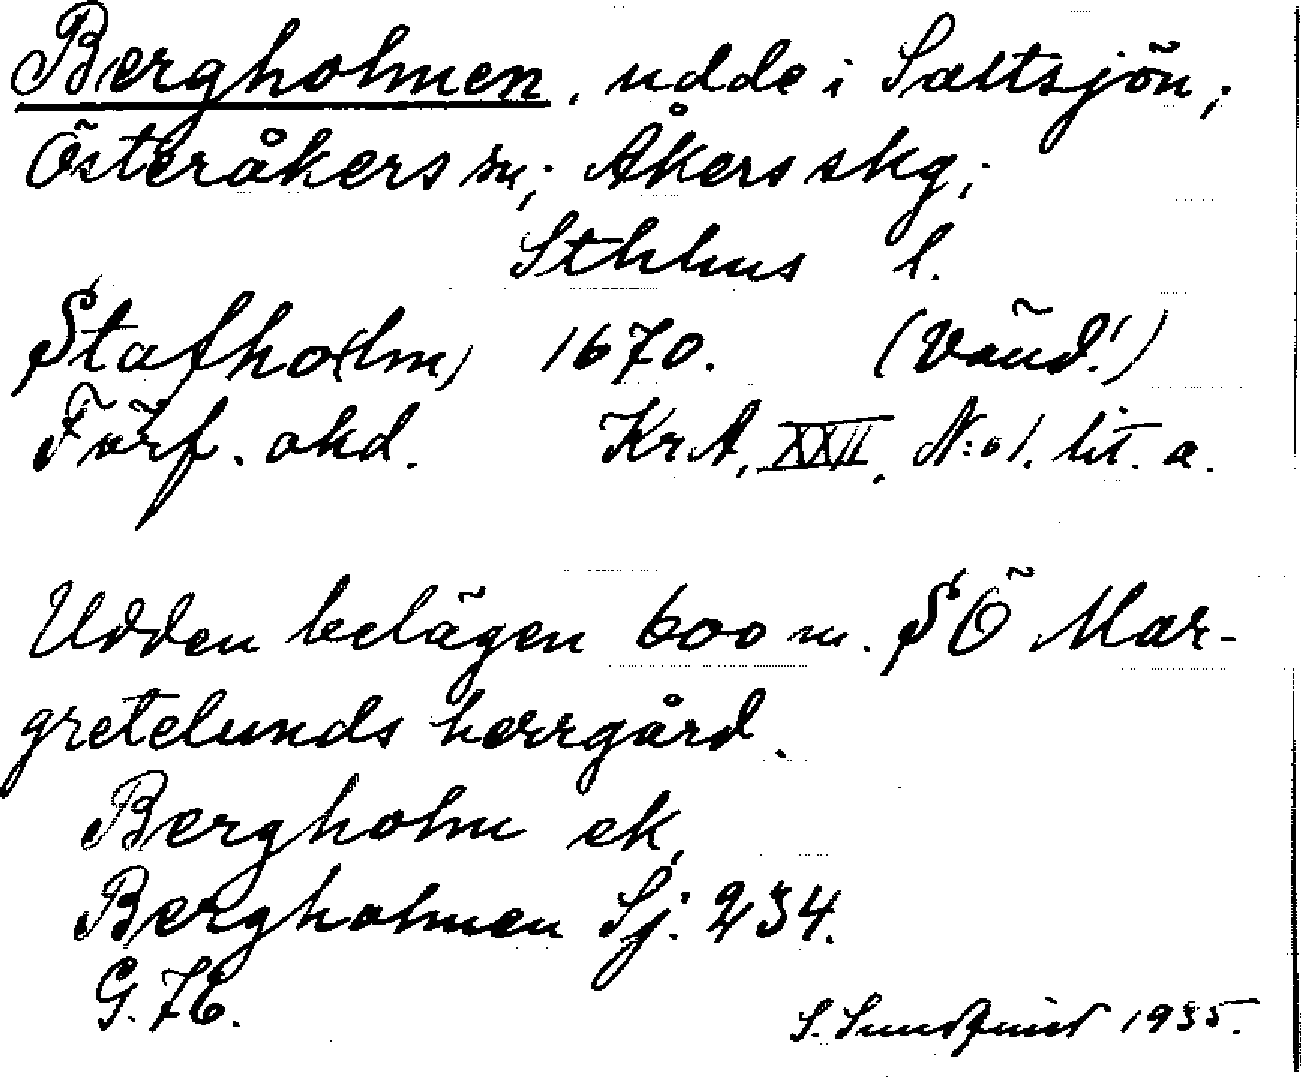 Bergholmen, udde i Saltsjön;
Österåkers sn; Åkers skg;
Sthlms l.
Stafho(lm) 1670. (Vänd!)
Förf. okd. KrA, XXII, N:o 1. lit. a.
Udden belägen 600 m. SÖ Mar-
gretelunds herrgård.
Bergholm ek,
Bergholmen Sj. 234.
G. 7E.
S. Sundquist 1935.